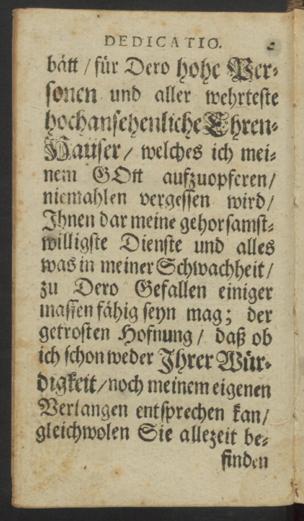 DEDICATIO.
bätt / für Dero hohe Per-
sonen und aller wehrteste
hochansehenliche Ehren-
Häuser / welches ich mei-
nem GOtt aufzuopferen /
niemahlen vergessen wird /
Ihnen dar meine gehorsamst-
willigste Dienste und alles
was in meiner Schwachheit /
zu Dero Gefallen einiger
massen fähig seyn mag; der
getrosten Hofnung / daß ob
ich schon weder Ihrer Wür-
digkeit / noch meinem eigenen
Verlangen entsprechen kan /
gleichwolen Sie allezeit be-
finden